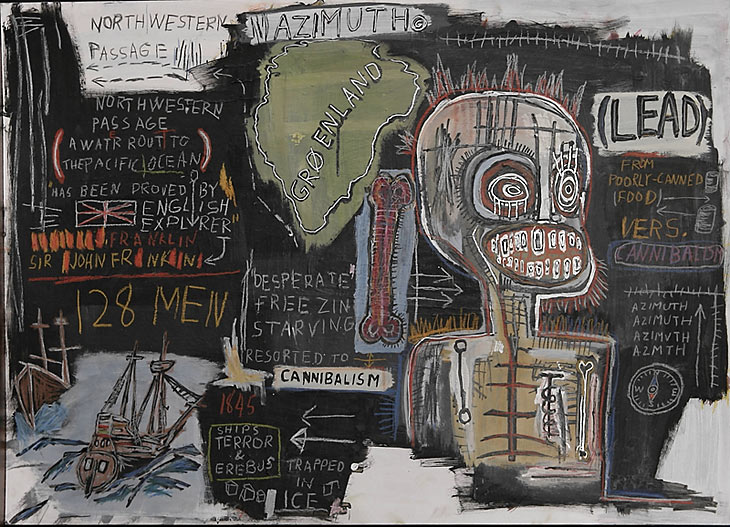 NORTHWESTERN
PASSAGE
AZIMUTH©
GRØENLAND
NORTHWESTERN
PASSAGE
(A WATR ROUT TO
THE PACIFIC OCEAN)
"HAS BEEN PROVED BY
ENGLISH
EXPLVRER"
FRANKLIN
SIR JOHN FRANKLIN
128 MEN
"DESPERATE"
FREEZIN
STARVING
RESORTED TO
CANNIBALISM
1845
SHIPS
TERROR
&
EREBUS
TRAPPED
IN
ICE
(LEAD)
FROM
POORLY-CANNED
(FOOD)
VERS.
AZIMUTH
AZIMUTH
AZIMUTH
AZMTH